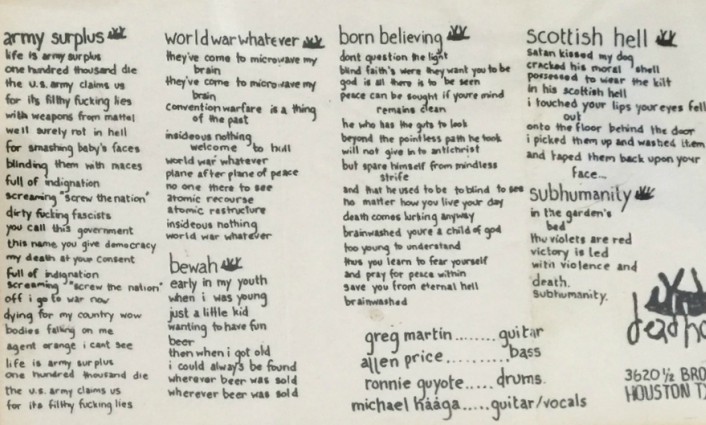 army surplus
life is army surplus
one hundred thousand die
the u.s. army claims us
for its filthy fucking lies
with weapons from mattel
we'll surely rot in hell
for smashing baby's faces
blinding them with maces
full of indignation
screaming "screw the nation"
dirty fucking fascists
you call this government
this name you give democracy
my death at your consent
full of indignation
screaming "screw the nation"
off i go to war now
dying for my country wow
bodies falling on me
agent orange i cant see
life is army surplus
one hundred thousand die
the u.s. army claims us
for its filthy fucking lies
world war whatever
they've come to microwave my
brain
they've come to microwave my
brain
convention warfare is a thing
of the past
insideous nothing
welcome to hull
world war whatever
plane after plane of peace
no one there to see
atomic recourse
atomic restructure
insideous nothing
world war whatever
bewah
early in my youth
when i was young
just a little kid
wanting to have fun
beer
then when i got old
i could always be found
wherever beer was sold
wherever beer was sold
born believing
dont question the light
blind faith's were they want you to be
god is all there is to be seen
peace can be sought if youre mind
remains clean
he who has the guts to look
beyond the pointless path he took
will not give in to antichrist
but spare himself from mindless
strife
and that he used to be to blind to see
no matter how you live your day
death comes lurking anyway
brainwashed youre a child of god
too young to understand
thus you learn to fear yourself
and pray for peace within
save you from eternal hell
brainwashed
greg martin........guitar
allen price..........bass
ronnie guyote.....drums.
michael háága.....guitar/vocals
scottish hell
satan kissed my dog
cracked his moral shell
possessed to wear the kilt
in his scottish hell
i touched your lips your eyes fell
out
onto the floor behind the door
i picked them up and washed them
and taped them back upon your
face...
subhumanity
in the garden's
bed
thu violets are red
victory is led
with violence and
death.
subhumanity.
3620 ½ BRO
HOUSTON TX